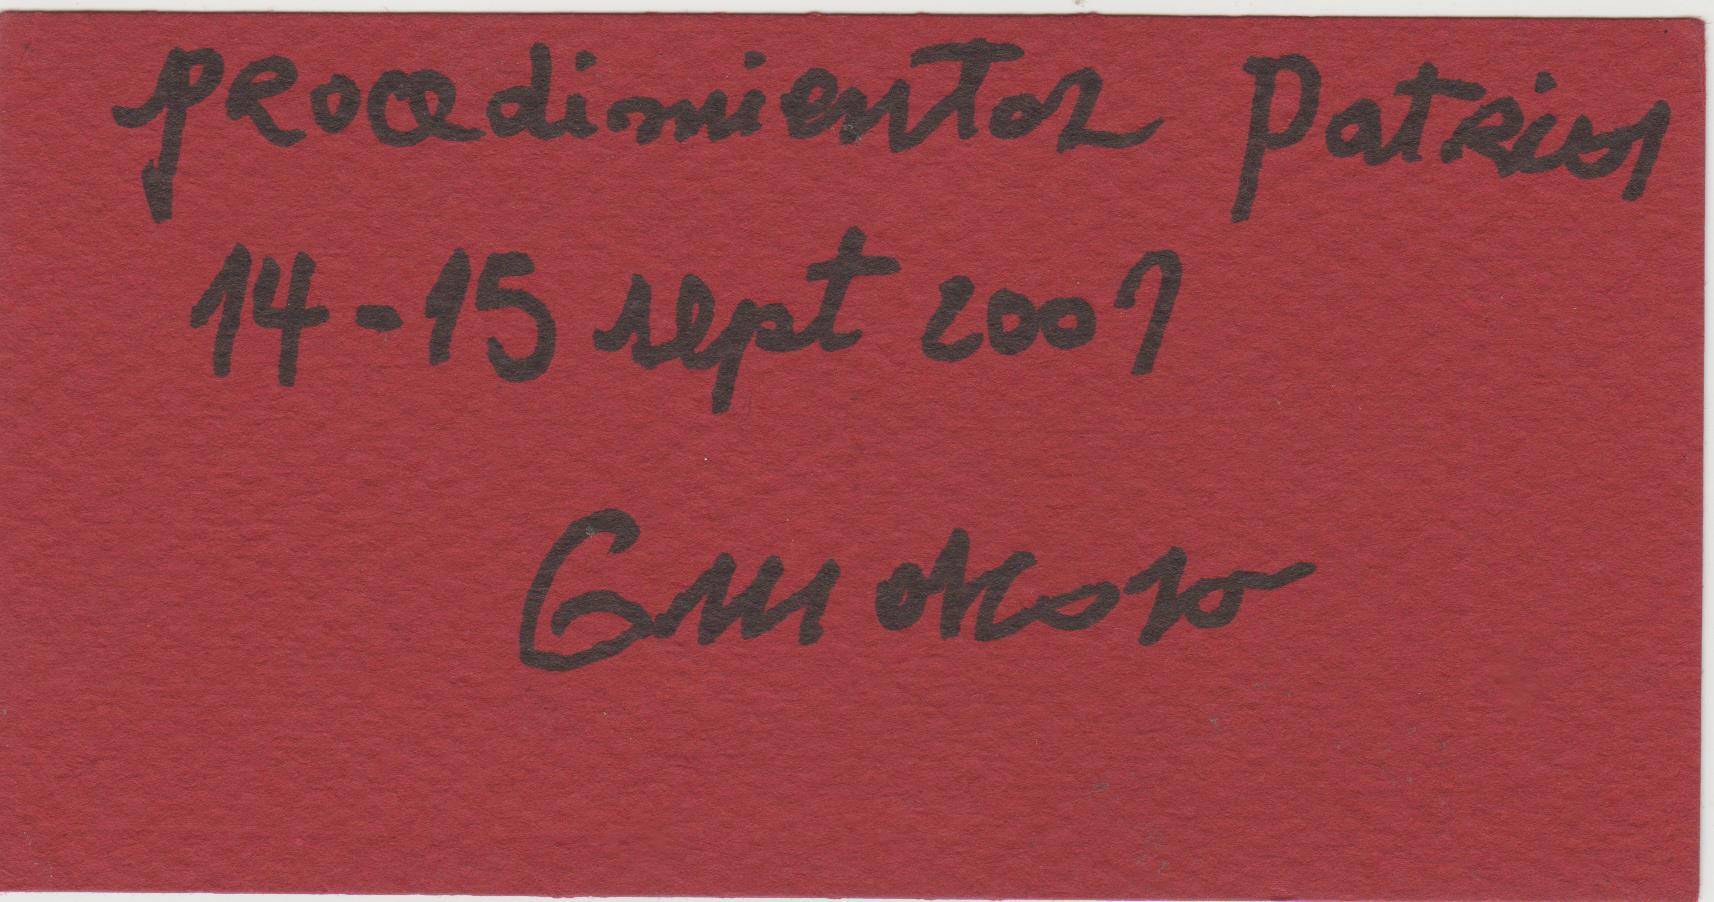 procedimientos Patrios
14-15 sept 2007